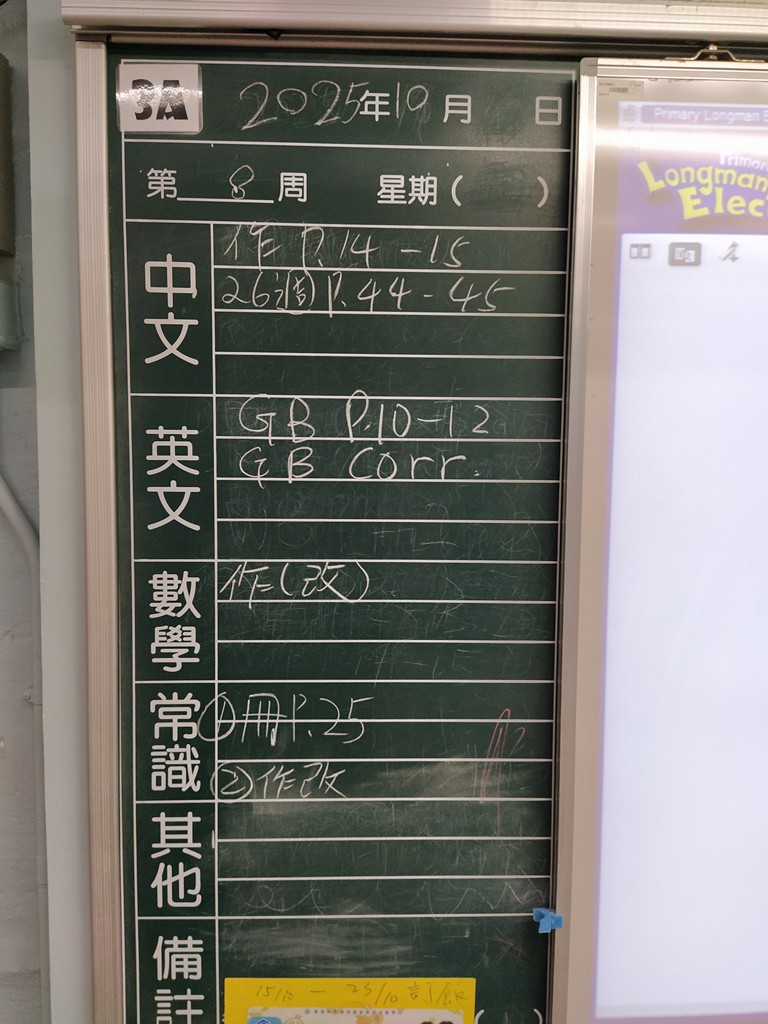 3A
2025年10月 日
第 8 周 星期( )
中文
作 P.14-15
26週 P.44-45
英文
GB P.10-12
GB Corr.
數學
作(改)
常識
①冊P.25
②作改
其他
備註
15/10 - 23/10 訂飯
Primary Longman E
Longman
Elec